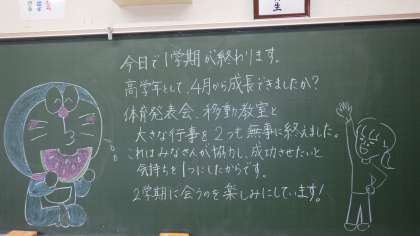 今日で1学期が終わります。
高学年として、4月から成長できましたか?
体育発表会、移動教室と
大きな行事を2つも無事に終えました。
これはみなさんが協力し、成功させたいと
気持ちを1つにしたからです。
2学期に会うのを楽しみにしています!